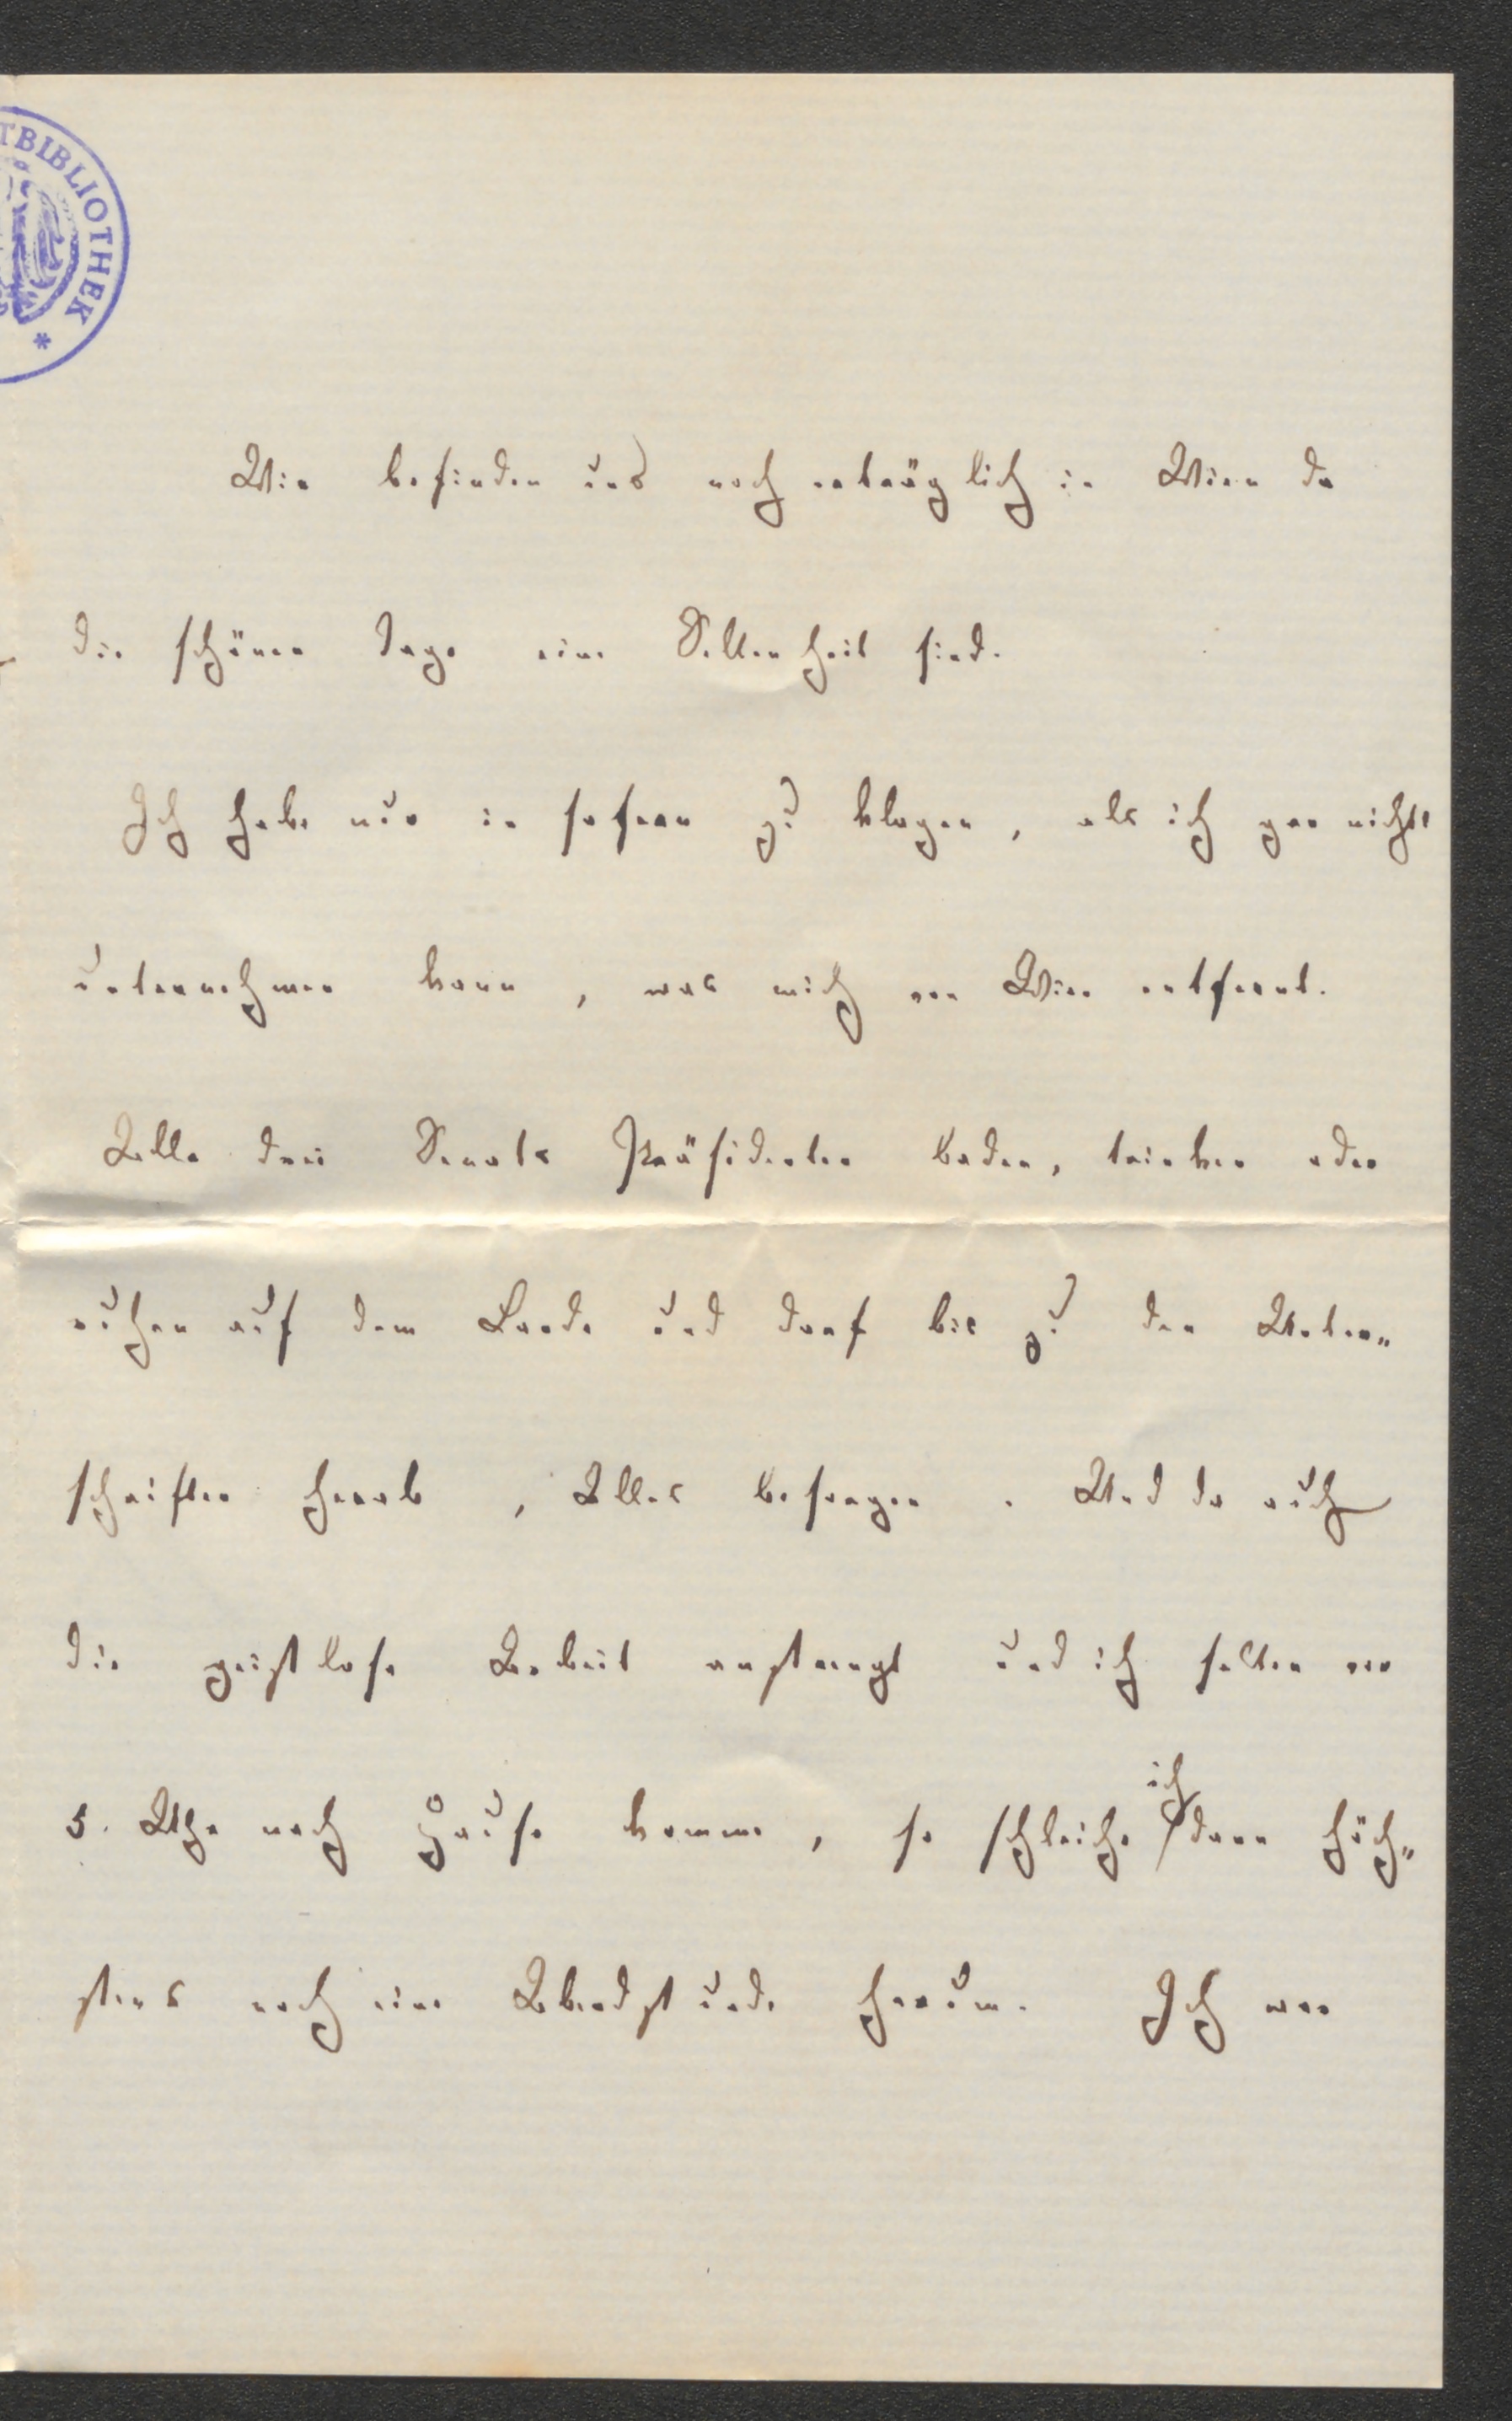 TBIBLIOTHEK *
Wir befinden uns noch erträglich in Wien da
die schönen Tage eine Seltenheit sind.
Ich habe nur in sofern zu klagen, als ich gar nichts
unternehmen kann, was mich von Wien entfernt.
Alle drei Senats Präsidenten baden, trinken oder
ruhen auf dem Lande und darf bis zu den Unter„
schriften herab, Alles besorgen. Und da auch
die geistlose Arbeit anstrengt und ich selten vor
5. Uhr nach Hause komme, so schleiche ich dann höch„
stens noch eine Abendstunde herum. Ich war